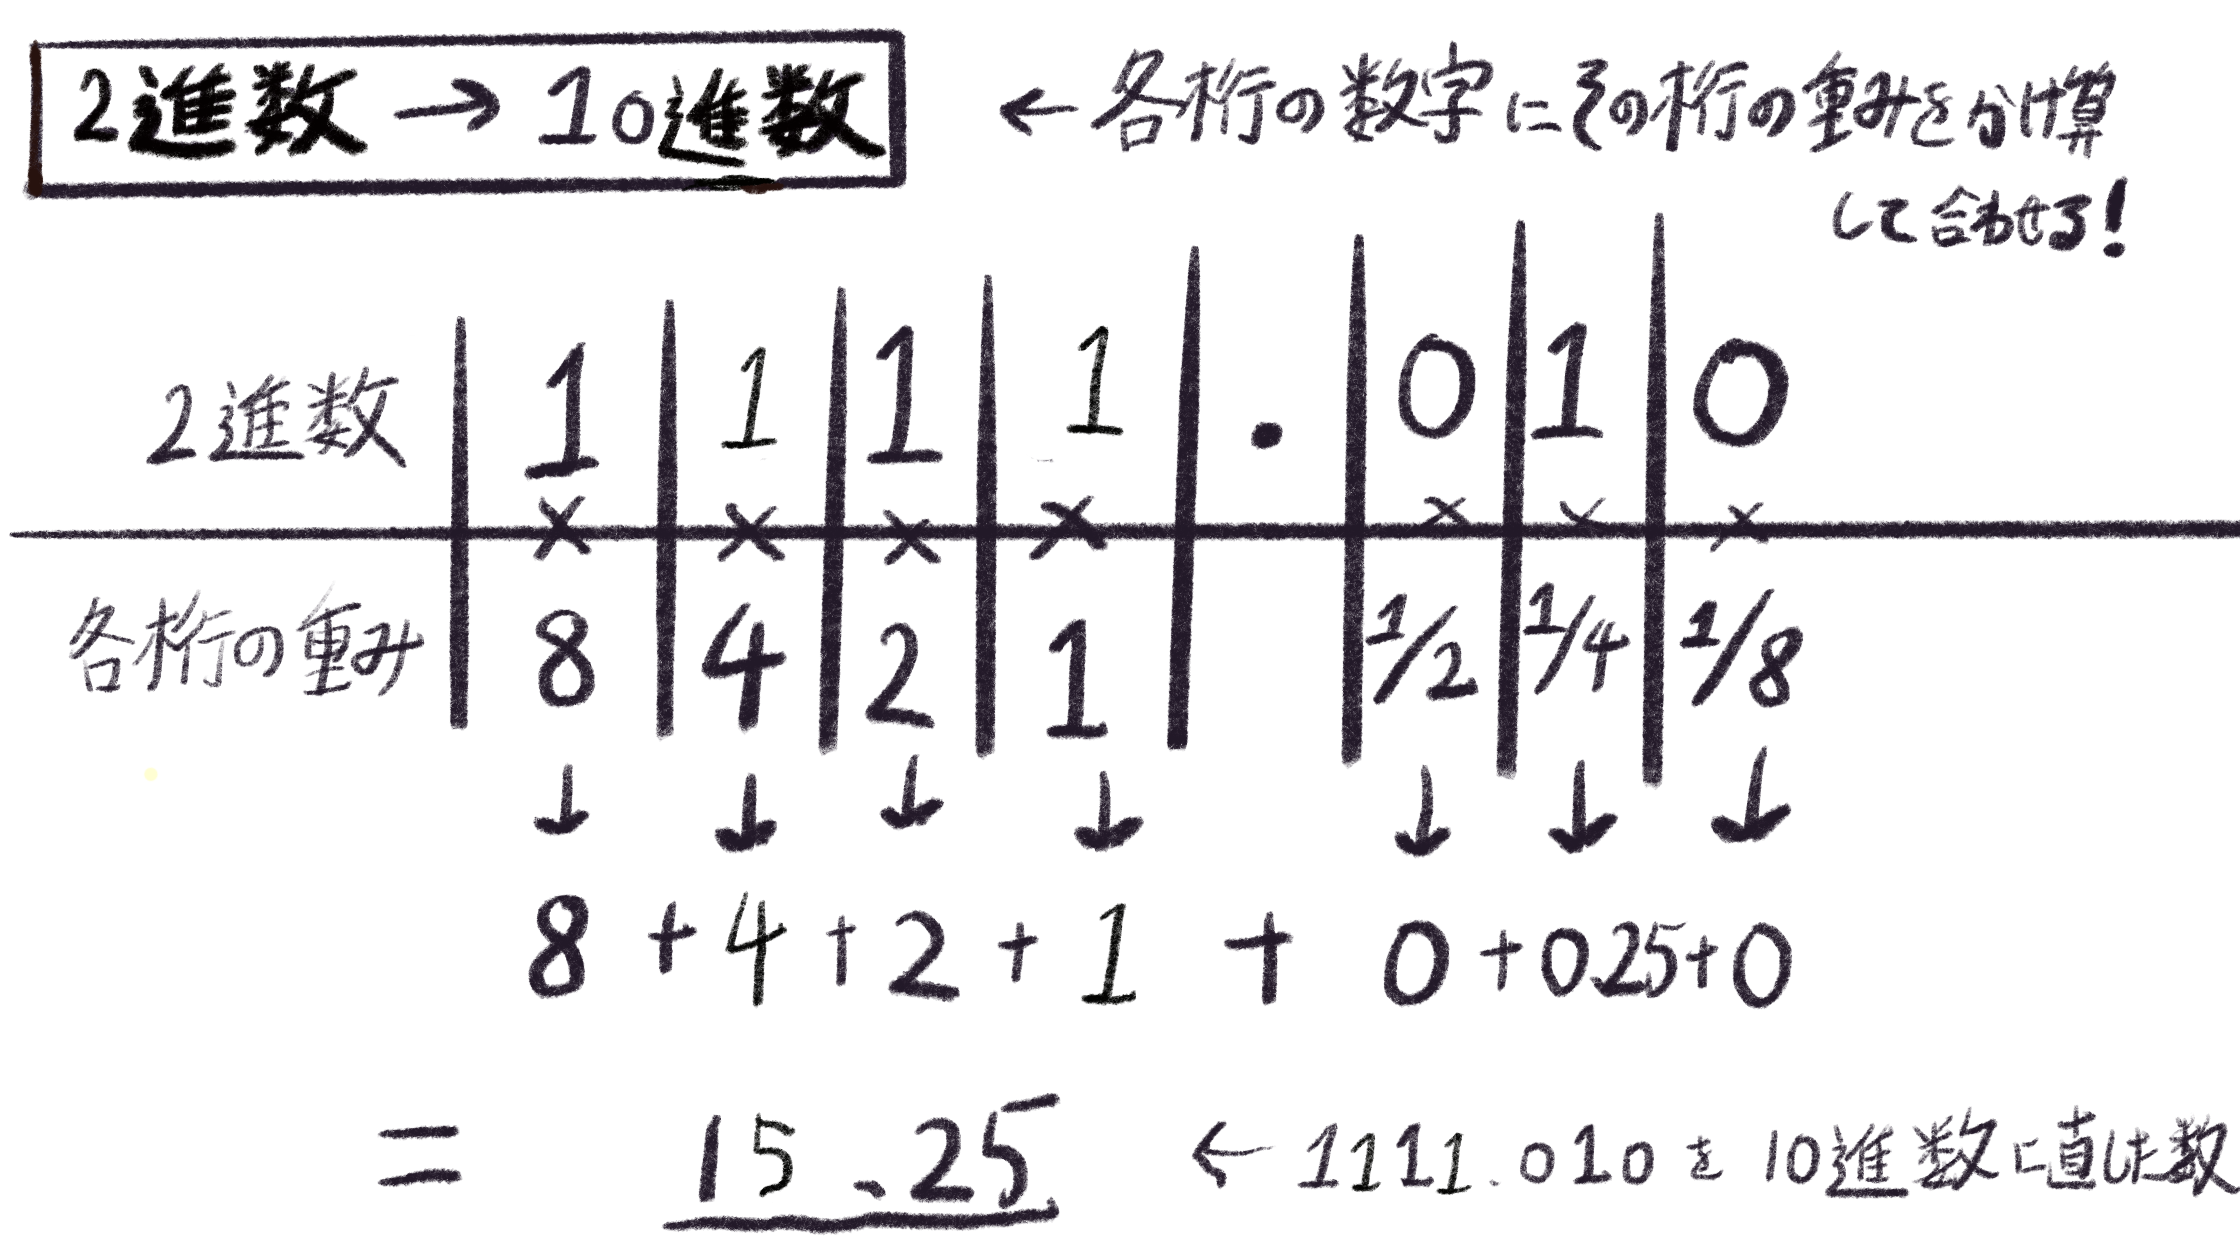 2進数→10進数 ←各桁の数字にその桁の重みをかけ算
して合わせる!
2進数 1 1 1 1 . 0 1 0
× × × × × × ×
各桁の重み 8 4 2 1 1/2 1/4 1/8
↓ ↓ ↓ ↓ ↓ ↓ ↓
8 + 4 + 2 + 1 + 0 + 0.25 + 0
= 15.25 ← 1111.010 を 10進数に直した数